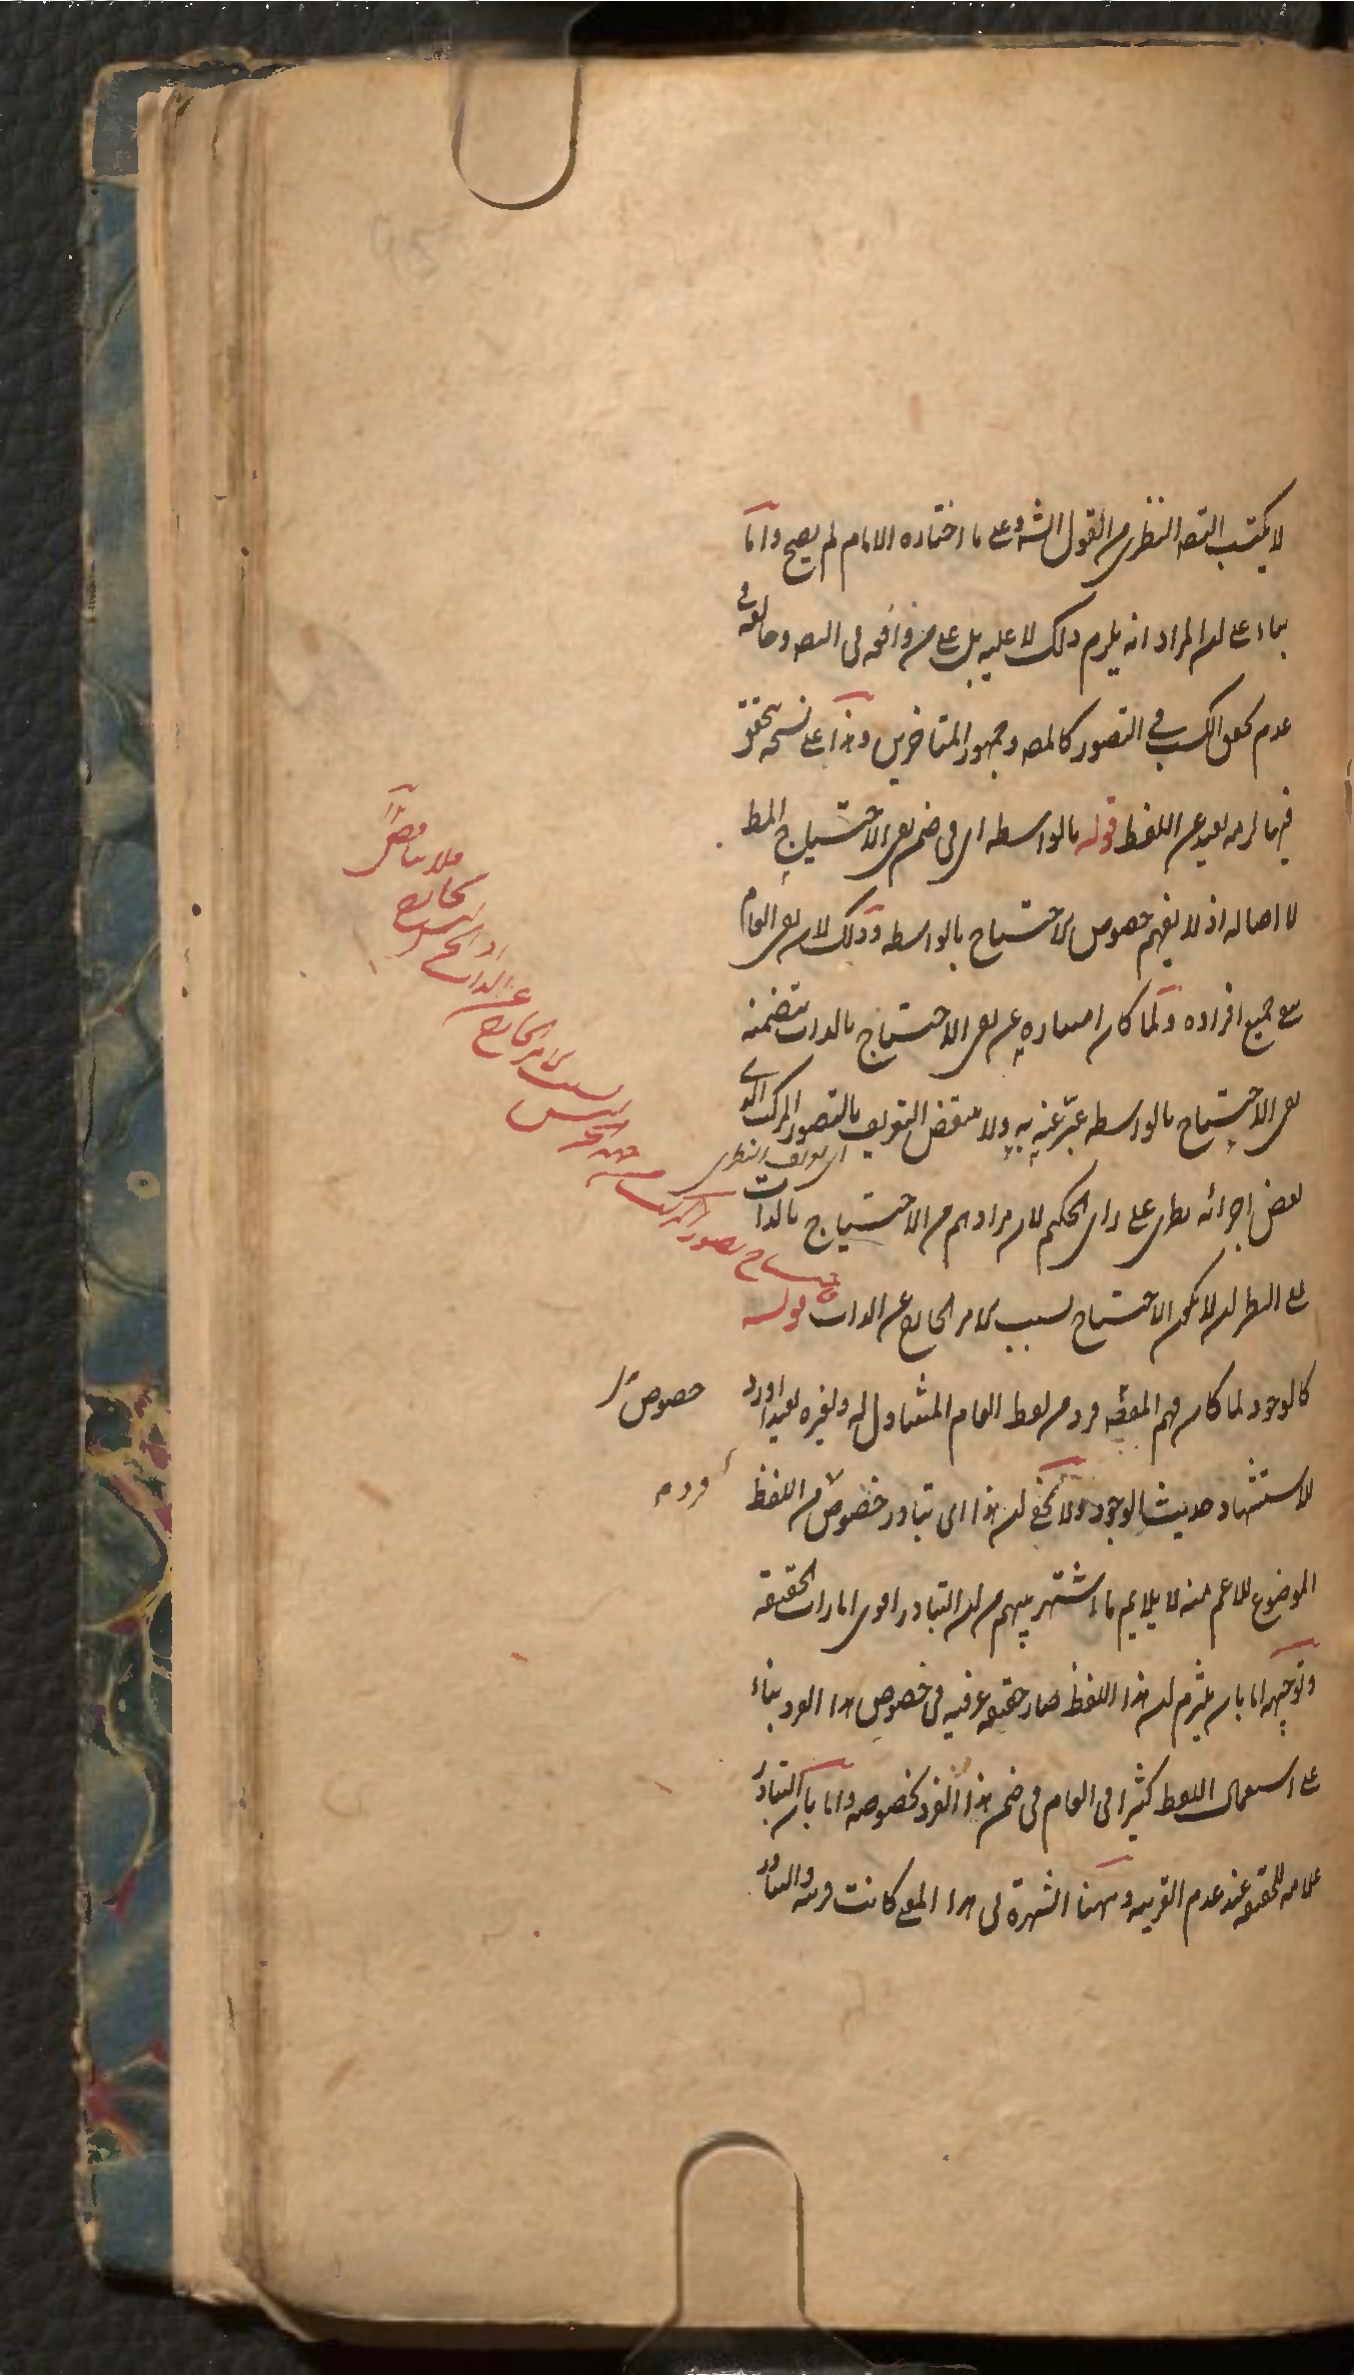 لا يكتسب التصه النظرى من القول الشه وعلى ما اختاره الامام لم يصح واما
بناء على ان المراد انه يلزم ذلك لا عليه بل على من وافقه فى التصه وخالفه فى
عدم تحقق الكسب فى التصور كالمصه وجمهور المتاخرين وهذا على نسخه تحقق
فيها لزمه بعيد عن اللفظ قوله بالواسطه اى فى ضمن نفى الاحتياج المط
لا اصاله اذ لا يفهم خصوص الاحتياج بالواسطه وذلك لان نفى العام
نفى جميع افراده ولما كان امتيازه عن نفى الاحتياج بالذات يتضمنه
نفى الاحتياج بالواسطه عبّر عنه به ولا ينتقض التعريف بالتصور المركب الذى
اى تعريف النظرى
بعض اجزائه نظرى على راى الحكيم لان مرادهم من الاحتياج بالذات
الى النظر ان لا يكون الاحتياج بسبب الامر الخارج عن الذات قوله
كالوجود لما كان فهم المعنى فرد من لفظ العام المتناول له ولغيره بعيدا اورد
خصوص
لاستشهاد حديث الوجود ولا يخفى ان هذا اى تبادر خصوص من اللفظ
فرد م
الموضوع للاعم منه لا يلايم ما اشتهر بينهم من ان التبادر اقوى امارات الحقيقه
وتوجيهه اما بان يلتزم ان هذا اللفظ صار حقيقه عرفيه فى خصوص هذا الفرد بناء
على استعمال اللفظ كثيرا فى العام فى ضمن هذا الفرد بخصوصه واما بان التبادر
علامه للحقيقه عند عدم القرينه وههنا الشهرة فى هذا المعنى كانت قرينه والتبادر
احتياج تصور المركب
ليس
بسبب الامر الخارج
عن الذات
اذ الجزء ليس
بخارج
فلا يناقض